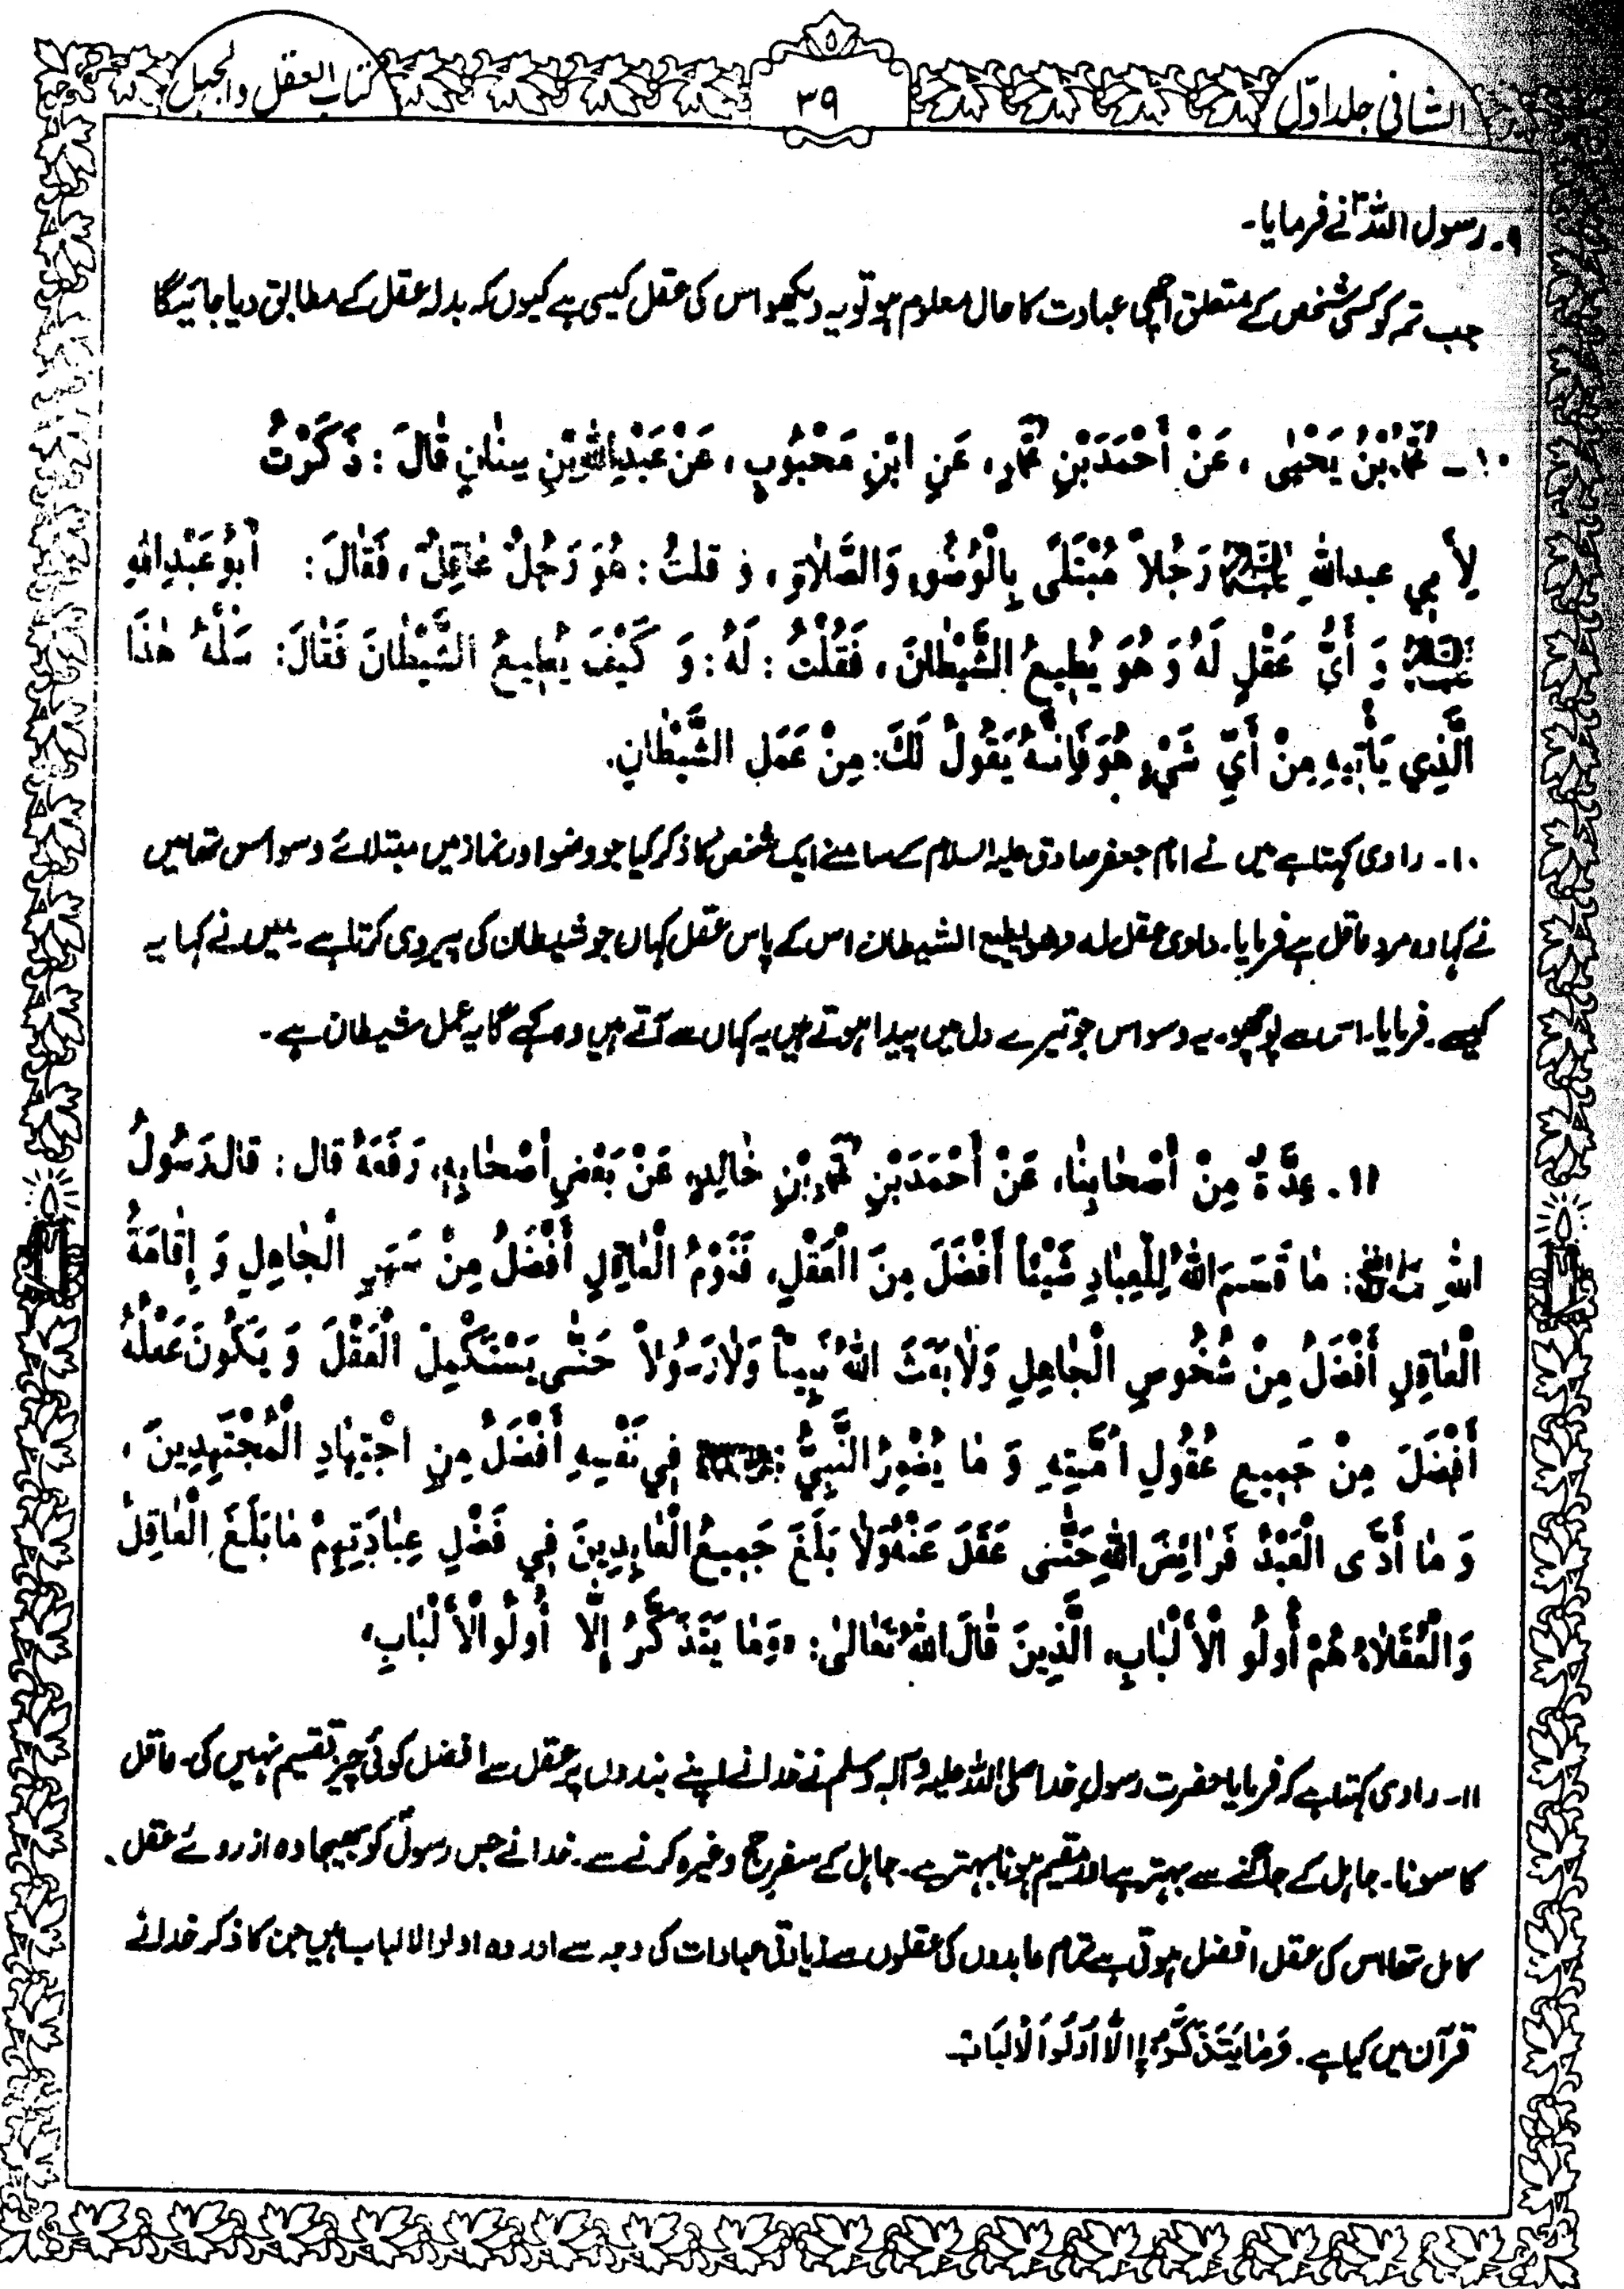 الشافی جلد اوّل
۳۹
کتاب العقل والجہل
۹۔ رسول اللہؐ نے فرمایا۔
جب تم کو کسی شخص کے متعلق اچھی عبادت کا حال معلوم ہو تو یہ دیکھو اس کی عقل کیسی ہے کیوں کہ بدلہ عقل کے مطابق دیا جائیگا
١٠ـ مُحَمَّدُ بْنُ يَحْيٰى ، عَنْ أَحْمَدَ بْنِ مُحَمَّدٍ، عَنِ ابْنِ مَحْبُوبٍ ، عَنْ عَبْدِ اللهِ بْنِ سِنَانٍ قَالَ : ذَكَرْتُ
لِأَبِي عبدالله عَلَيْهِ السَّلَامُ رَجُلاً مُبْتَلًى بِالْوُضُوءِ وَالصَّلَاةِ ، وَ قلتُ : هُوَ رَجُلٌ عَاقِلٌ ، فَقَالَ : أَبُو عَبْدِ اللهِ
عَلَيْهِ السَّلَامُ وَ أَيُّ عَقْلٍ لَهُ وَ هُوَ يُطِيعُ الشَّيْطَانَ ، فَقُلْتُ : لَهُ : وَ كَيْفَ يُطِيعُ الشَّيْطَانَ فَقَالَ : سَلْهُ هٰذَا
الَّذِي يَأْتِيهِ مِنْ أَيِّ شَيْءٍ هُوَ فَإِنَّهُ يَقُولُ لَكَ : مِنْ عَمَلِ الشَّيْطَانِ.
۱۰۔ راوی کہتا ہے میں نے امام جعفر صادق علیہ السلام کے سامنے ایک شخص کا ذکر کیا جو وضو اور نماز میں مبتلائے وسواس تھا میں
نے کہا وہ مرد عاقل ہے فرمایا۔ وای عقل لہ وھو یطیع الشیطان اس کے پاس عقل کہاں جو شیطان کی پیروی کرتا ہے۔ میں نے کہا یہ
کیسے۔ فرمایا۔ اس سے پوچھو۔ یہ وسواس جو تیرے دل میں پیدا ہوتے ہیں یہ کہاں سے آتے ہیں وہ کہے گا یہ عمل شیطان ہے۔
١١ ـ عِدَّةٌ مِنْ أَصْحَابِنَا، عَنْ أَحْمَدَ بْنِ مُحَمَّدِ بْنِ خَالِدٍ، عَنْ بَعْضِ أَصْحَابِهِ، رَفَعَهُ قال : قال رَسُولُ
اللهِ ﷺ : مَا قَسَمَ اللهُ لِلْعِبَادِ شَيْئاً أَفْضَلَ مِنَ الْعَقْلِ، فَنَوْمُ الْعَاقِلِ أَفْضَلُ مِنْ سَهَرِ الْجَاهِلِ وَ إِقَامَةُ
الْعَاقِلِ أَفْضَلُ مِنْ شُخُوصِ الْجَاهِلِ وَلَا بَعَثَ اللهُ نَبِيّاً وَلَا رَسُولاً حَتّٰى يَسْتَكْمِلَ الْعَقْلَ وَ يَكُونَ عَقْلُهُ
أَفْضَلَ مِنْ جَمِيعِ عُقُولِ أُمَّتِهِ وَ مَا يُضْمِرُ النَّبِيُّ ﷺ فِي نَفْسِهِ أَفْضَلُ مِنِ اجْتِهَادِ الْمُجْتَهِدِينَ ،
وَ مَا أَدَّى الْعَبْدُ فَرَائِضَ اللهِ حَتّٰى عَقَلَ عَنْهُ وَلَا بَلَغَ جَمِيعُ الْعَابِدِينَ فِي فَضْلِ عِبَادَتِهِمْ مَا بَلَغَ الْعَاقِلُ
وَالْعُقَلَاءُ هُمْ أُولُو الْأَلْبَابِ، الَّذِينَ قَالَ اللهُ تَعَالٰى: «وَمَا يَتَذَكَّرُ إِلَّا أُولُوا الْأَلْبَابِ»
۱۱۔ راوی کہتا ہے کہ فرمایا حضرت رسولِ خدا صلی اللہ علیہ وآلہ وسلم نے خدا نے اپنے بندوں پر عقل سے افضل کوئی چیز تقسیم نہیں کی۔ عاقل
کا سونا۔ جاہل کے جاگنے سے بہتر ہے اور مقیم ہونا بہتر ہے۔ جاہل کے سفرِ حج وغیرہ کرنے سے۔ خدا نے جس رسولؐ کو بھیجا وہ از روئے عقل
کامل تھا اس کی عقل افضل ہوتی ہے تمام عابدوں کی عقلوں سے زیادتی عبادات کی وجہ سے اور وہ اولوالالباب ہیں جن کا ذکر خدا نے
قرآن میں کیا ہے۔ وَمَا يَتَذَكَّرُ إِلَّا أُولُوا الْأَلْبَابِ